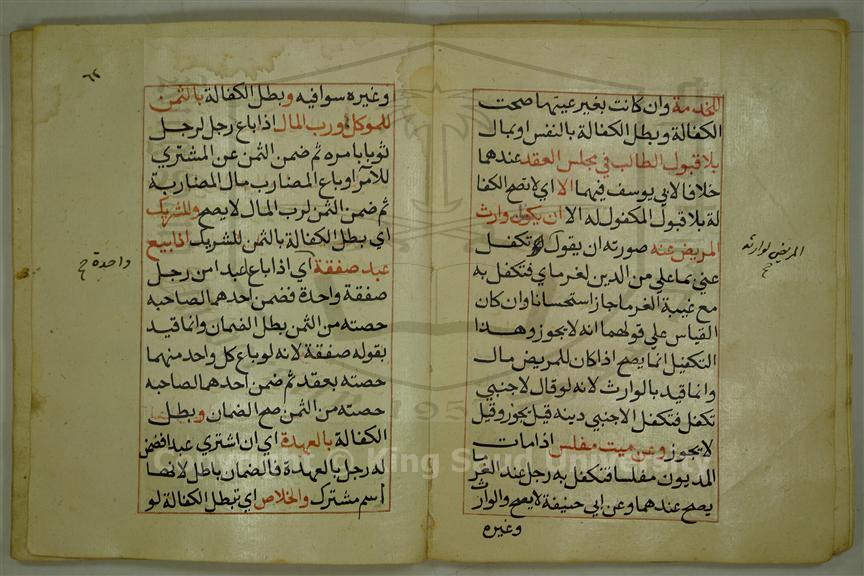 للخدمة وان كانت بغير عينها صحت
الكفالة وبطل الكفالة بالنفس او بمال
بلا قبول الطالب في مجلس العقد عندهما
خلافا لابي يوسف فيهما الا اي لا تصح الكفا
لة بلا قبول المكفول له الا ان يكون وارث
المريض عنه صورته ان يقول تكفل
عني بما علي من الدين لغرماي فتكفل به
مع غيبة الغرما جاز استحسانا وان كان
القياس علي قولهما انه لا يجوز وهذا
التكفيل انما يصح اذا كان للمريض مال
وانما قيد بالوارث لانه لو قال لاجنبي
تكفل فتكفل الاجنبي دينه قيل يجوز وقيل
لا يجوز وعن ميت مفلس اذا مات
المديون مفلسا فتكفل به رجل عند الغر
ما
يصح عندهما وعن ابي حنيفة لا يصح والوارث
وغيره
المريض لوارثه
صح
٦٢
وغيره سوا فيه وبطل الكفالة بالثمن
للموكل ورب المال اذا باع رجل لرجل
ثوبا بامره ثم ضمن الثمن عن المشتري
للآمر او باع المضارب مال المضاربة
ثم ضمن الثمن لرب المال لا يصح وللشريك
اي بطل الكفالة بالثمن للشريك اذا بيع
عبد صفقة اي اذا باع عبدا من رجل
صفقة واحدة فضمن احدهما لصاحبه
حصته من الثمن بطل الضمان وانما قيد
بقوله صفقة لانه لو باع كل واحد منهما
حصته بعقد ثم ضمن احدهما لصاحبه
حصته من الثمن صح الضمان وبطل
الكفالة بالعهدة اي ان اشتري عبدا فضمن
له رجل بالعهدة فالضمان باطل لانها
اسم مشترك والخلاص اي تبطل الكفالة لو
واحدة صح
Copyright © King Saud University
1957